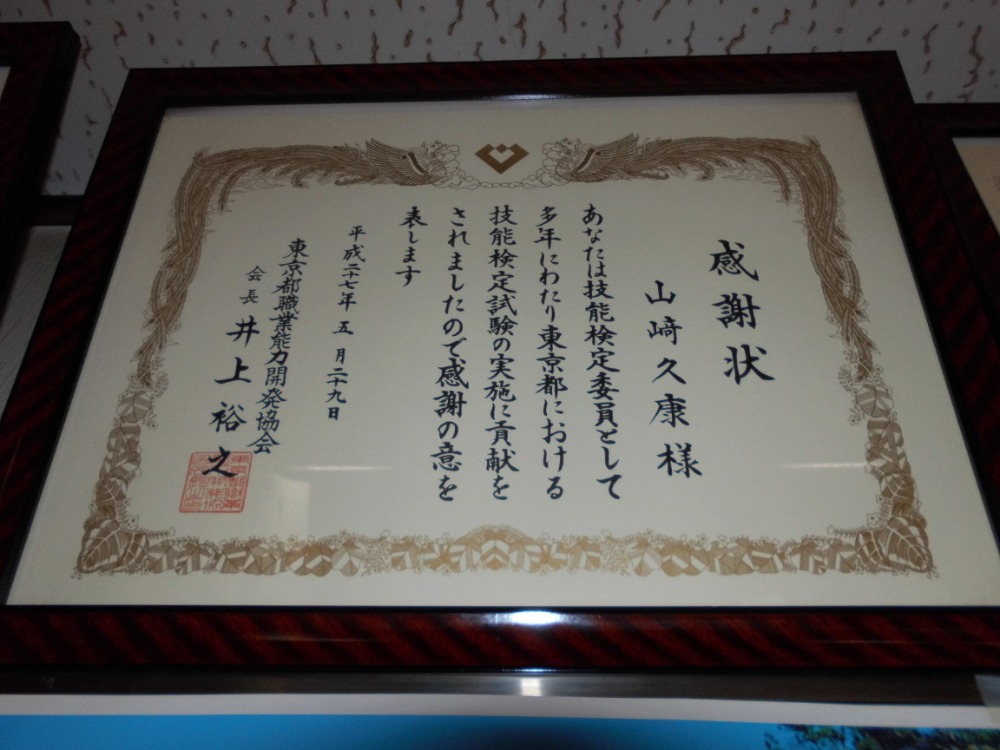 感謝状
山﨑久康様
あなたは技能検定委員として
多年にわたり東京都における
技能検定試験の実施に貢献を
されましたので感謝の意を
表します
平成二十七年五月二十九日
東京都職業能力開発協会
会長 井上裕之